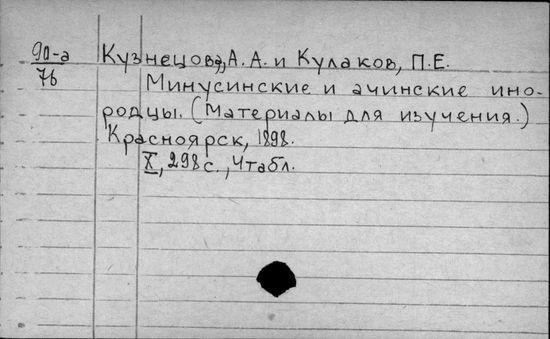 90-а Кузнецова, А. А. и Кулаков, П. Е.
76 Минусинские и ачинские ино-
родцы. (Материалы для изучения.)
Красноярск, 1898.
X, 298 с., 4 табл.